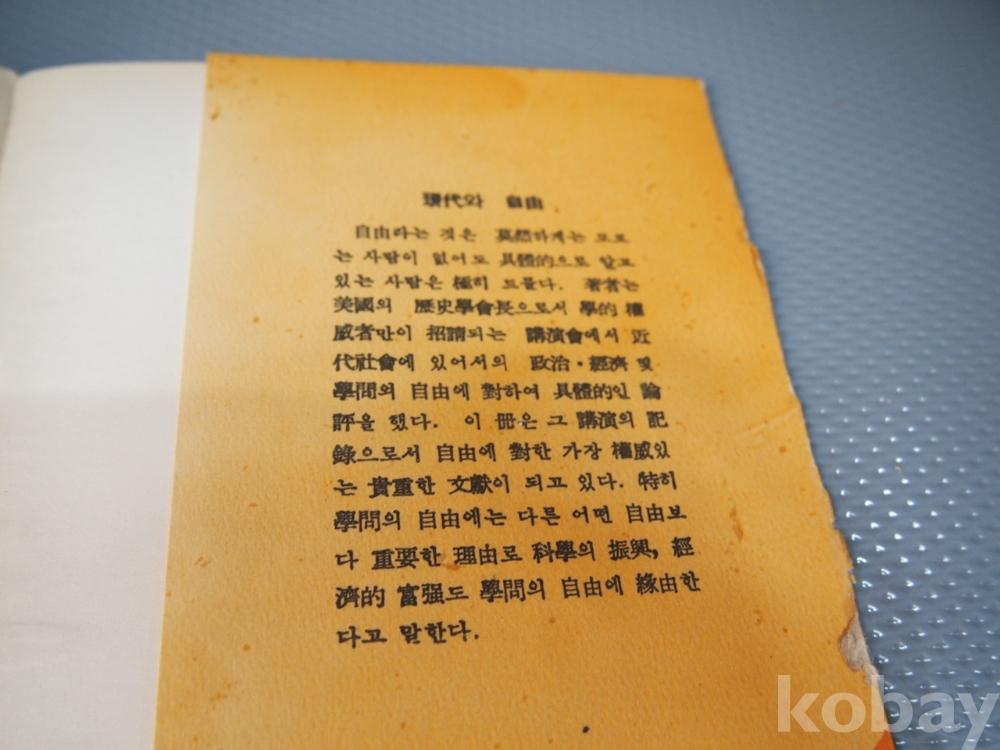 現代와 自由
自由라는 것은 莫然하게는 모르
는 사람이 없어도 具體的으로 알고
있는 사람은 極히 드물다. 著者는
美國의 歷史學會長으로서 學的 權
威者만이 招請되는 講演會에서 近
代社會에 있어서의 政治·經濟 및
學問의 自由에 對하여 具體的인 論
評을 했다. 이 冊은 그 講演의 記
錄으로서 自由에 對한 가장 權威있
는 貴重한 文獻이 되고 있다. 特히
學問의 自由에는 다른 어떤 自由보
다 重要한 理由로 科學의 振興, 經
濟的 富强도 學問의 自由에 緣由한
다고 말한다.
kobay